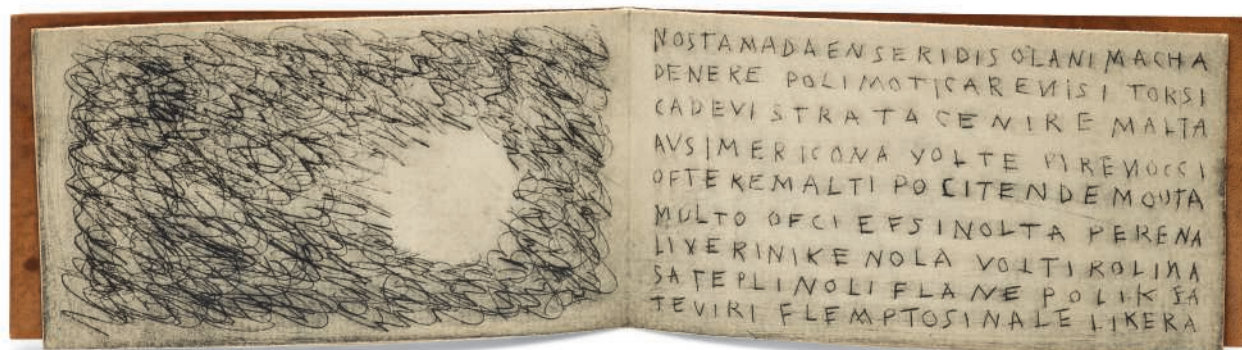 NOSTAMADAENSERIDISOLANIMACHA
DENERE POLIMOTICARENISI TOKSI
CADEVISTRATACENIKE MALTA
AVSIMERICONA VOLTE VIRENOCCI
OFTEKEMALTI PO CITENDEMOUTA
MULTO OFCI EFSINOLTA PERENA
LIVERINIKENOLA VOLTIROLINA
SATEPLINOLIFLANE POLIKSA
TEVIRI FLEMPTOSINALE LIKERA